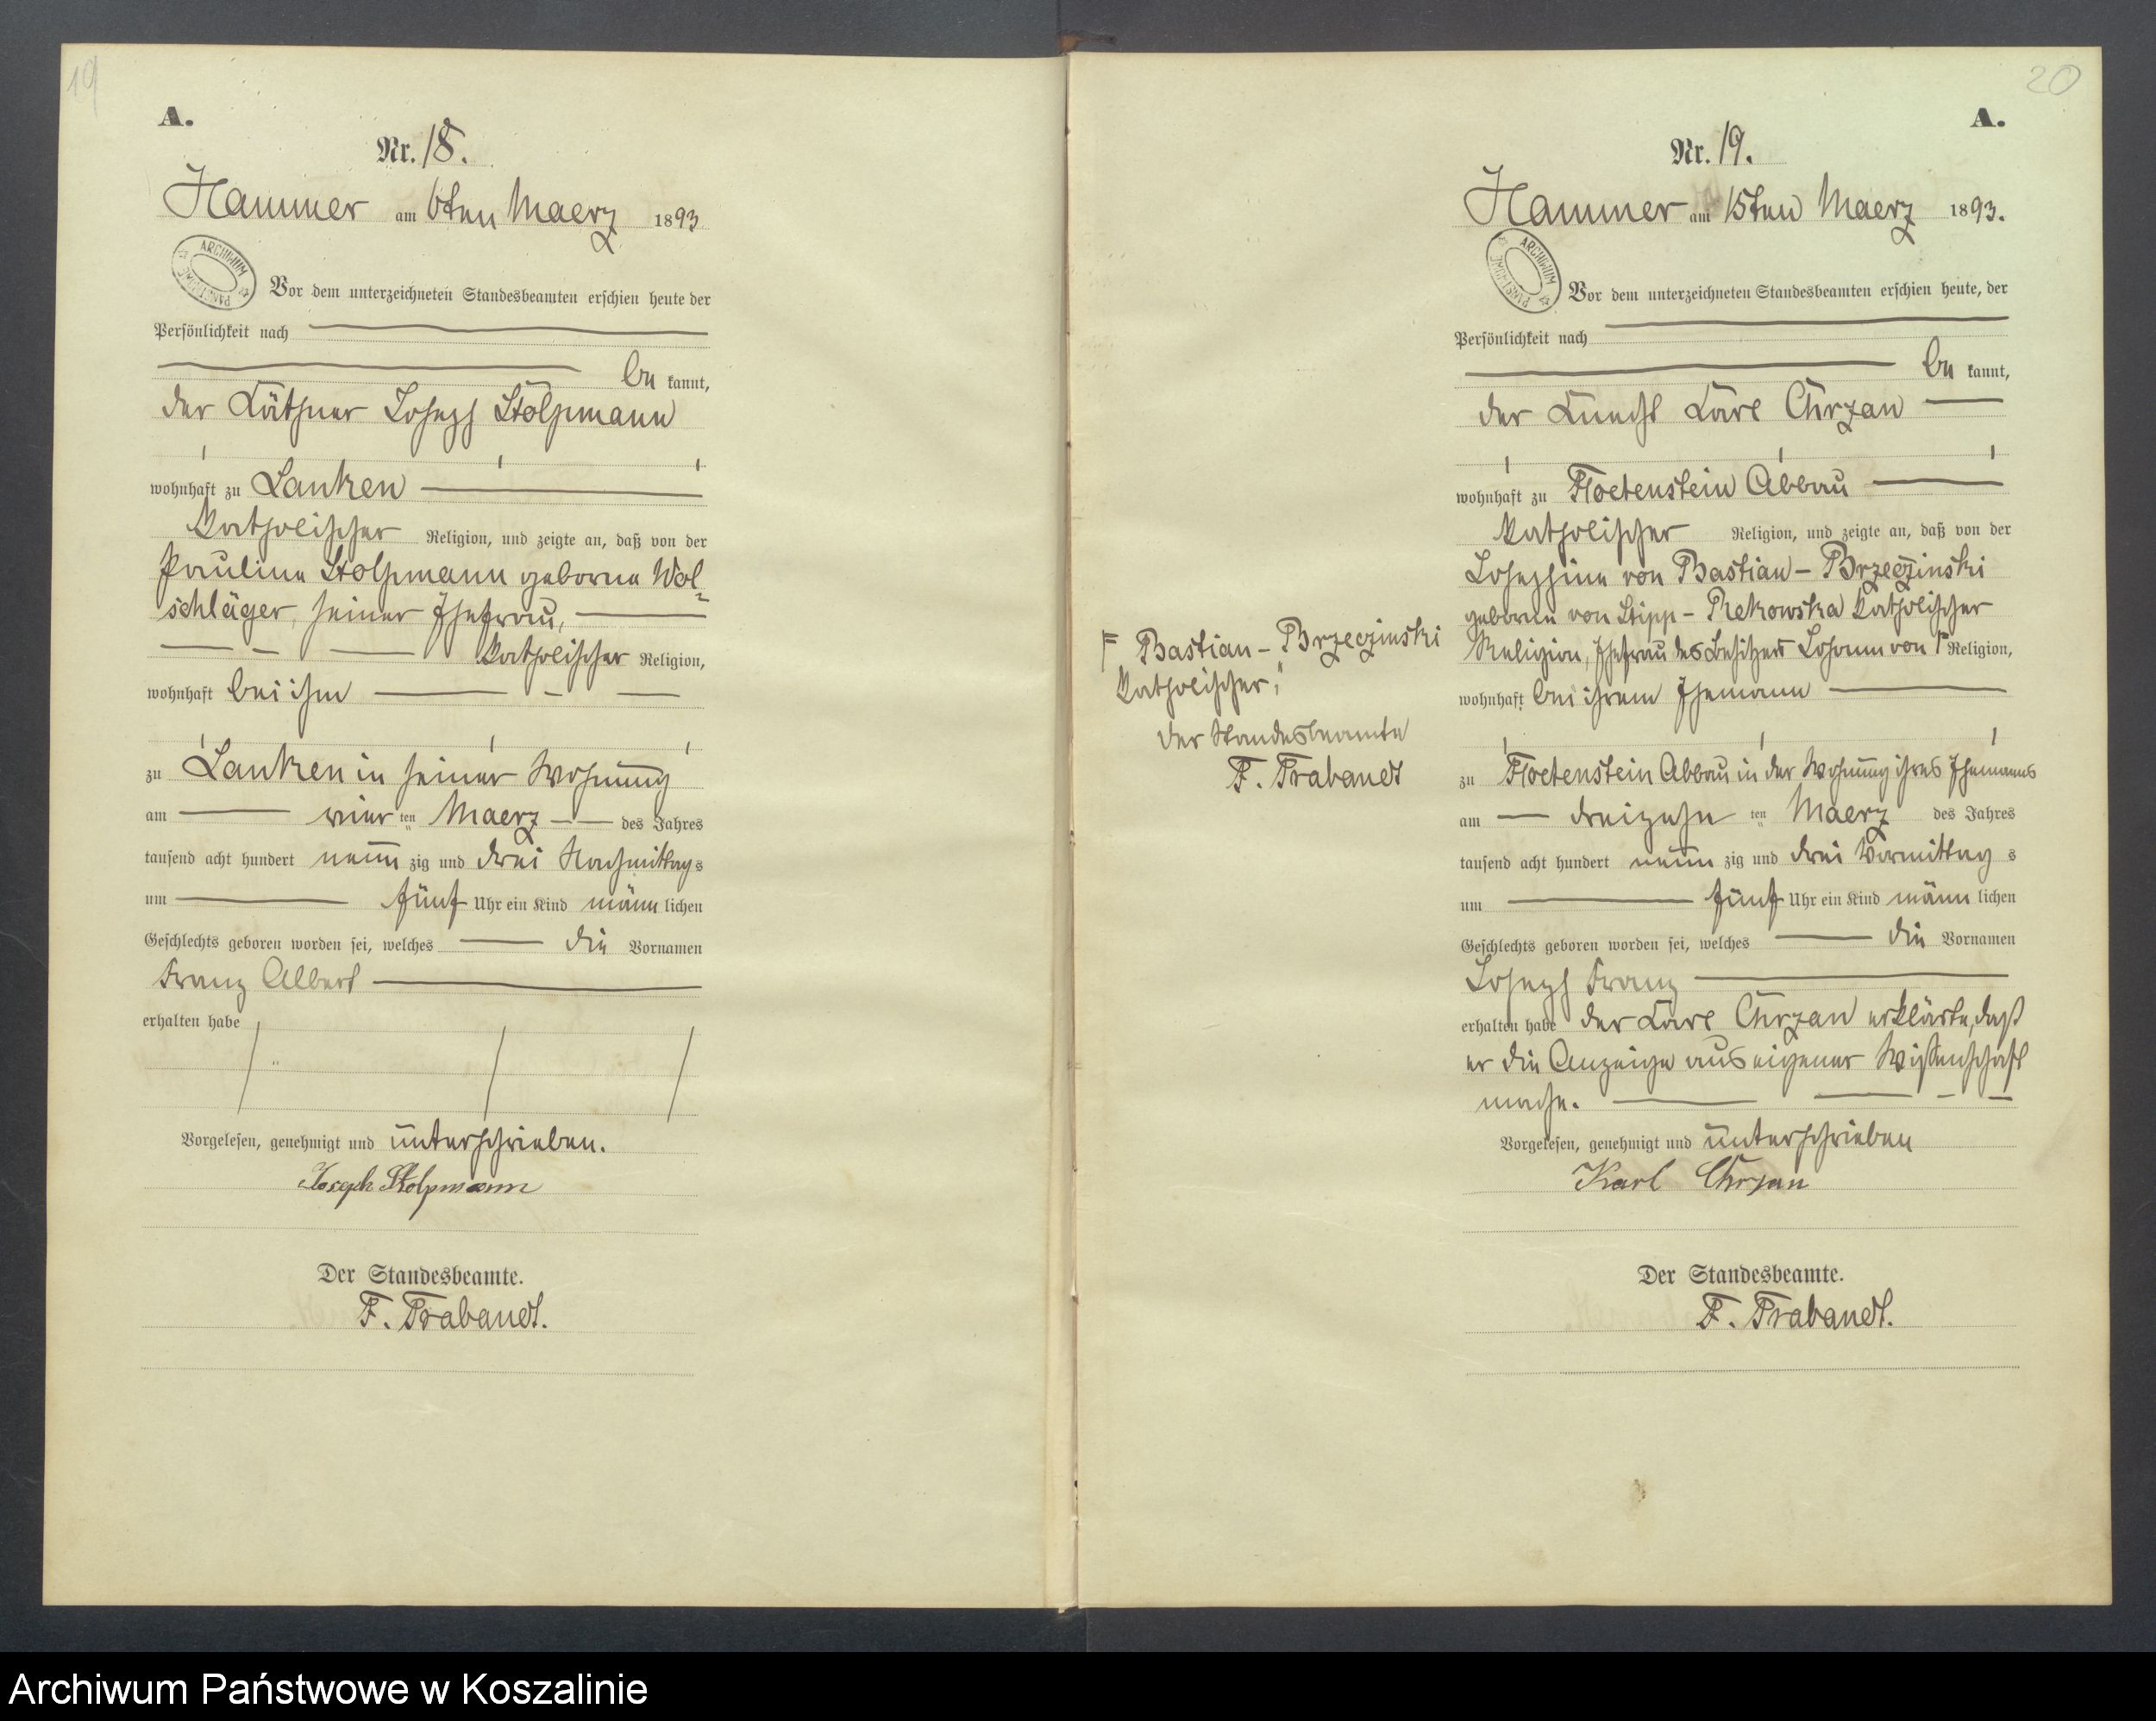 19
A.
Nr. 18.
Hammer am 6ten Maerz 1893
ARCHIWUM PAŃSTWOWE
Vor dem unterzeichneten Standesbeamten erschien heute der
Persönlichkeit nach
be kannt,
der Käthner Joseph Stolpmann
wohnhaft zu Lanken
katholischer Religion, und zeigte an, daß von der
Pauline Stolpmann geborne Wol-
schläger, seiner Ehefrau,
katholischer Religion,
wohnhaft bei ihm
zu Lanken in seiner Wohnung
am vier ten Maerz des Jahres
tausend acht hundert neun zig und drei Nachmittag s
um fünf Uhr ein Kind männ lichen
Geschlechts geboren worden sei, welches die Vornamen
Franz Albert
erhalten habe
Vorgelesen, genehmigt und unterschrieben.
Joseph Stolpmann
Der Standesbeamte.
F. Trabandt.
20
A.
Nr. 19.
Hammer am 15ten Maerz 1893.
ARCHIWUM PAŃSTWOWE
Vor dem unterzeichneten Standesbeamten erschien heute, der
Persönlichkeit nach
be kannt,
der Knecht Karl Chrzan
wohnhaft zu Floetenstein Abbau
katholischer Religion, und zeigte an, daß von der
Josephine von Bastian - Brzeczinski
geborne von Stipp - Rekowska katholischer
Religion, Ehefrau des Besitzers Johann von F Religion,
wohnhaft bei ihrem Ehemann
zu Floetenstein Abbau in der Wohnung ihres Ehemanns
am dreizehn ten Maerz des Jahres
tausend acht hundert neun zig und drei Vormittag s
um fünf Uhr ein Kind männ lichen
Geschlechts geboren worden sei, welches die Vornamen
Joseph Franz
erhalten habe der Karl Chrzan erklärte, daß
er die Anzeige aus eigener Wissenschaft
mache.
Vorgelesen, genehmigt und unterschrieben
Karl Chrzan
Der Standesbeamte.
F. Trabandt.
F Bastian - Brzeczinski
katholischer;
der Standesbeamte
F. Trabandt
Archiwum Państwowe w Koszalinie